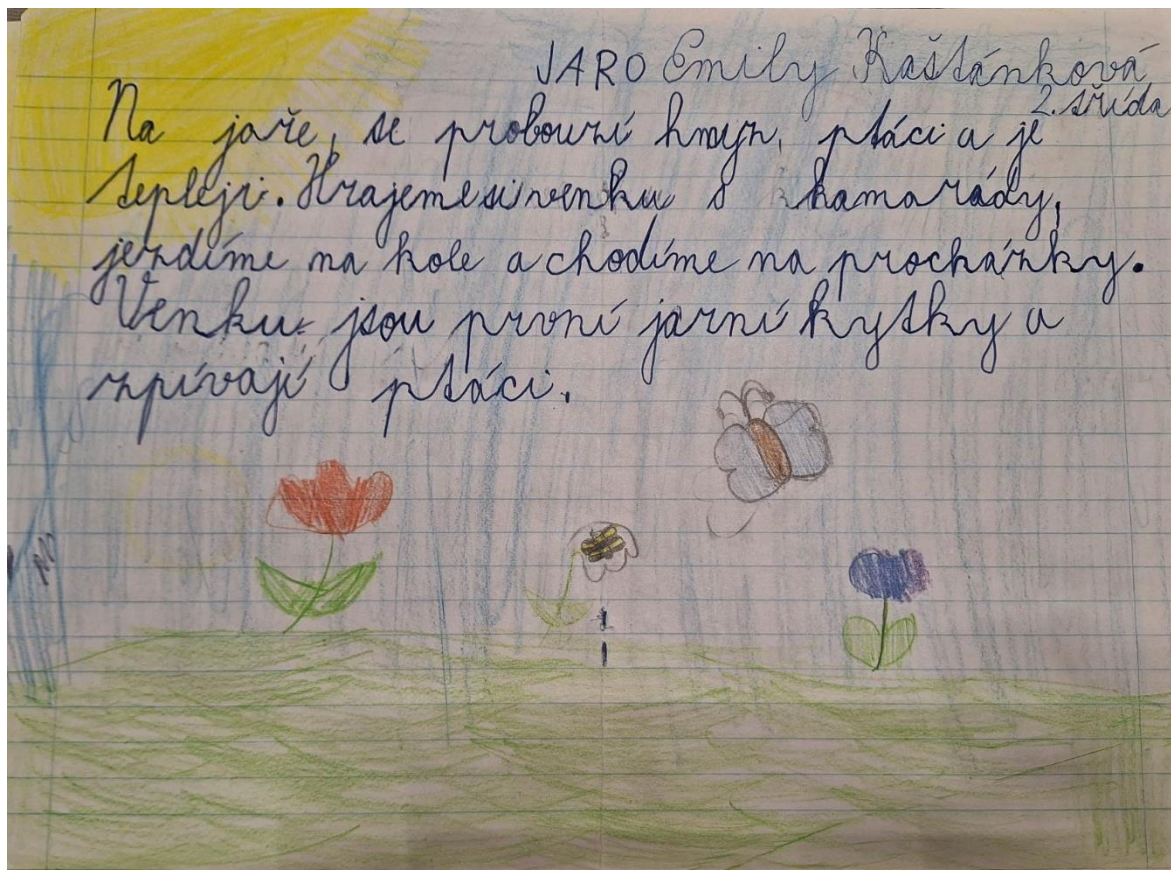 JARO Emily Kaštánková
2. třída
Na jaře, se probouzí hmyz, ptáci a je
tepleji. Hrajeme si venku s kamarády,
jezdíme na kole a chodíme na procházky.
Venku jsou první jarní kytky a
zpívají ptáci.